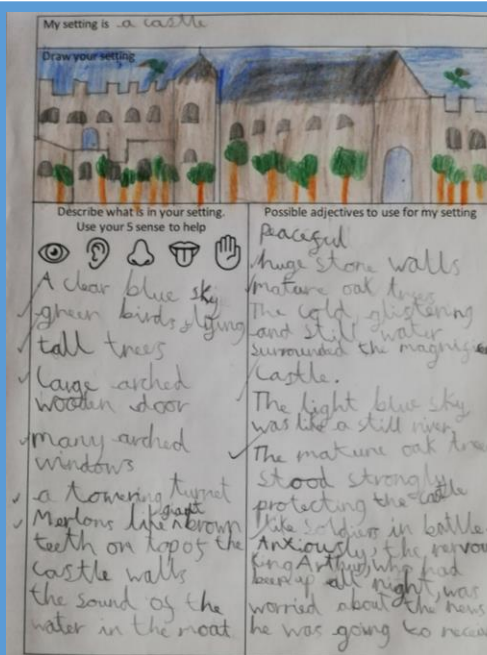 My setting is a castle
Draw your setting
Describe what is in your setting.
Use your 5 sense to help
A clear blue sky
green birds flying
tall trees
Large arched
wooden door
many arched
windows
a towering turret
Merlons like giant brown
teeth on top of the
castle walls
the sound of the
water in the moat
Possible adjectives to use for my setting
Peaceful
huge stone walls
mature oak trees
The cold, glistening
and still water
surrounded the
castle.
The light blue sky
was like a still river
The mature oak tree
stood strongly
protecting the castle
like soldiers in battle
Anxiously, the nervou
King Arthur, who had
been up all night, was
worried about the news
he was going to